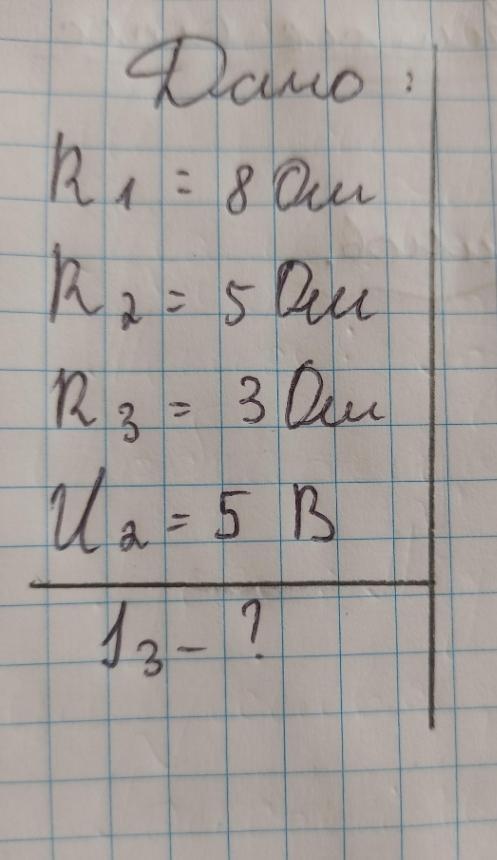 Дано:
R1 = 8 Ом
R2 = 5 Ом
R3 = 3 Ом
U2 = 5 В
I3 - ?